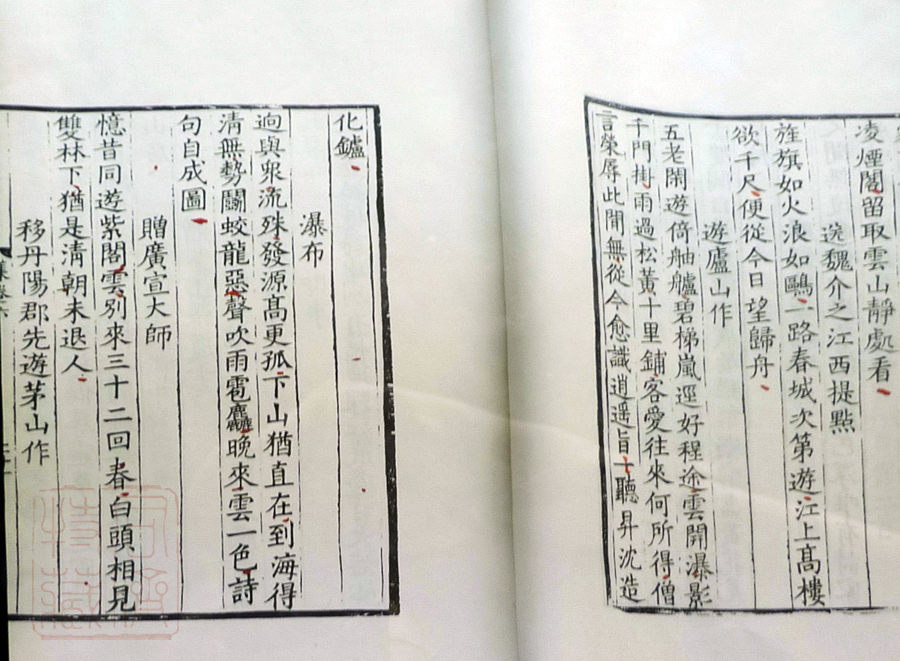 凌煙閣留取雲山靜處看
送魏介之江西提點
旌旗如火浪如鷗一路春城次第遊江上高樓
欲千尺便從今日望歸舟
遊廬山作
五老閑遊倚舳艫碧梯嵐逕好程途雲開瀑影
千門掛雨過松黃十里鋪客愛往來何所得僧
言榮辱此間無從今愈識逍遙旨一聽昇沈造
化鑪
瀑布
逈與衆流殊發源高更孤下山猶直在到海得
清無勢鬭蛟龍惡聲吹雨雹麤晚來雲一色詩
句自成圖
贈廣宣大師
憶昔同遊紫閣雲別來三十二回春白頭相見
雙林下猶是清朝未退人
移丹陽郡先遊茅山作